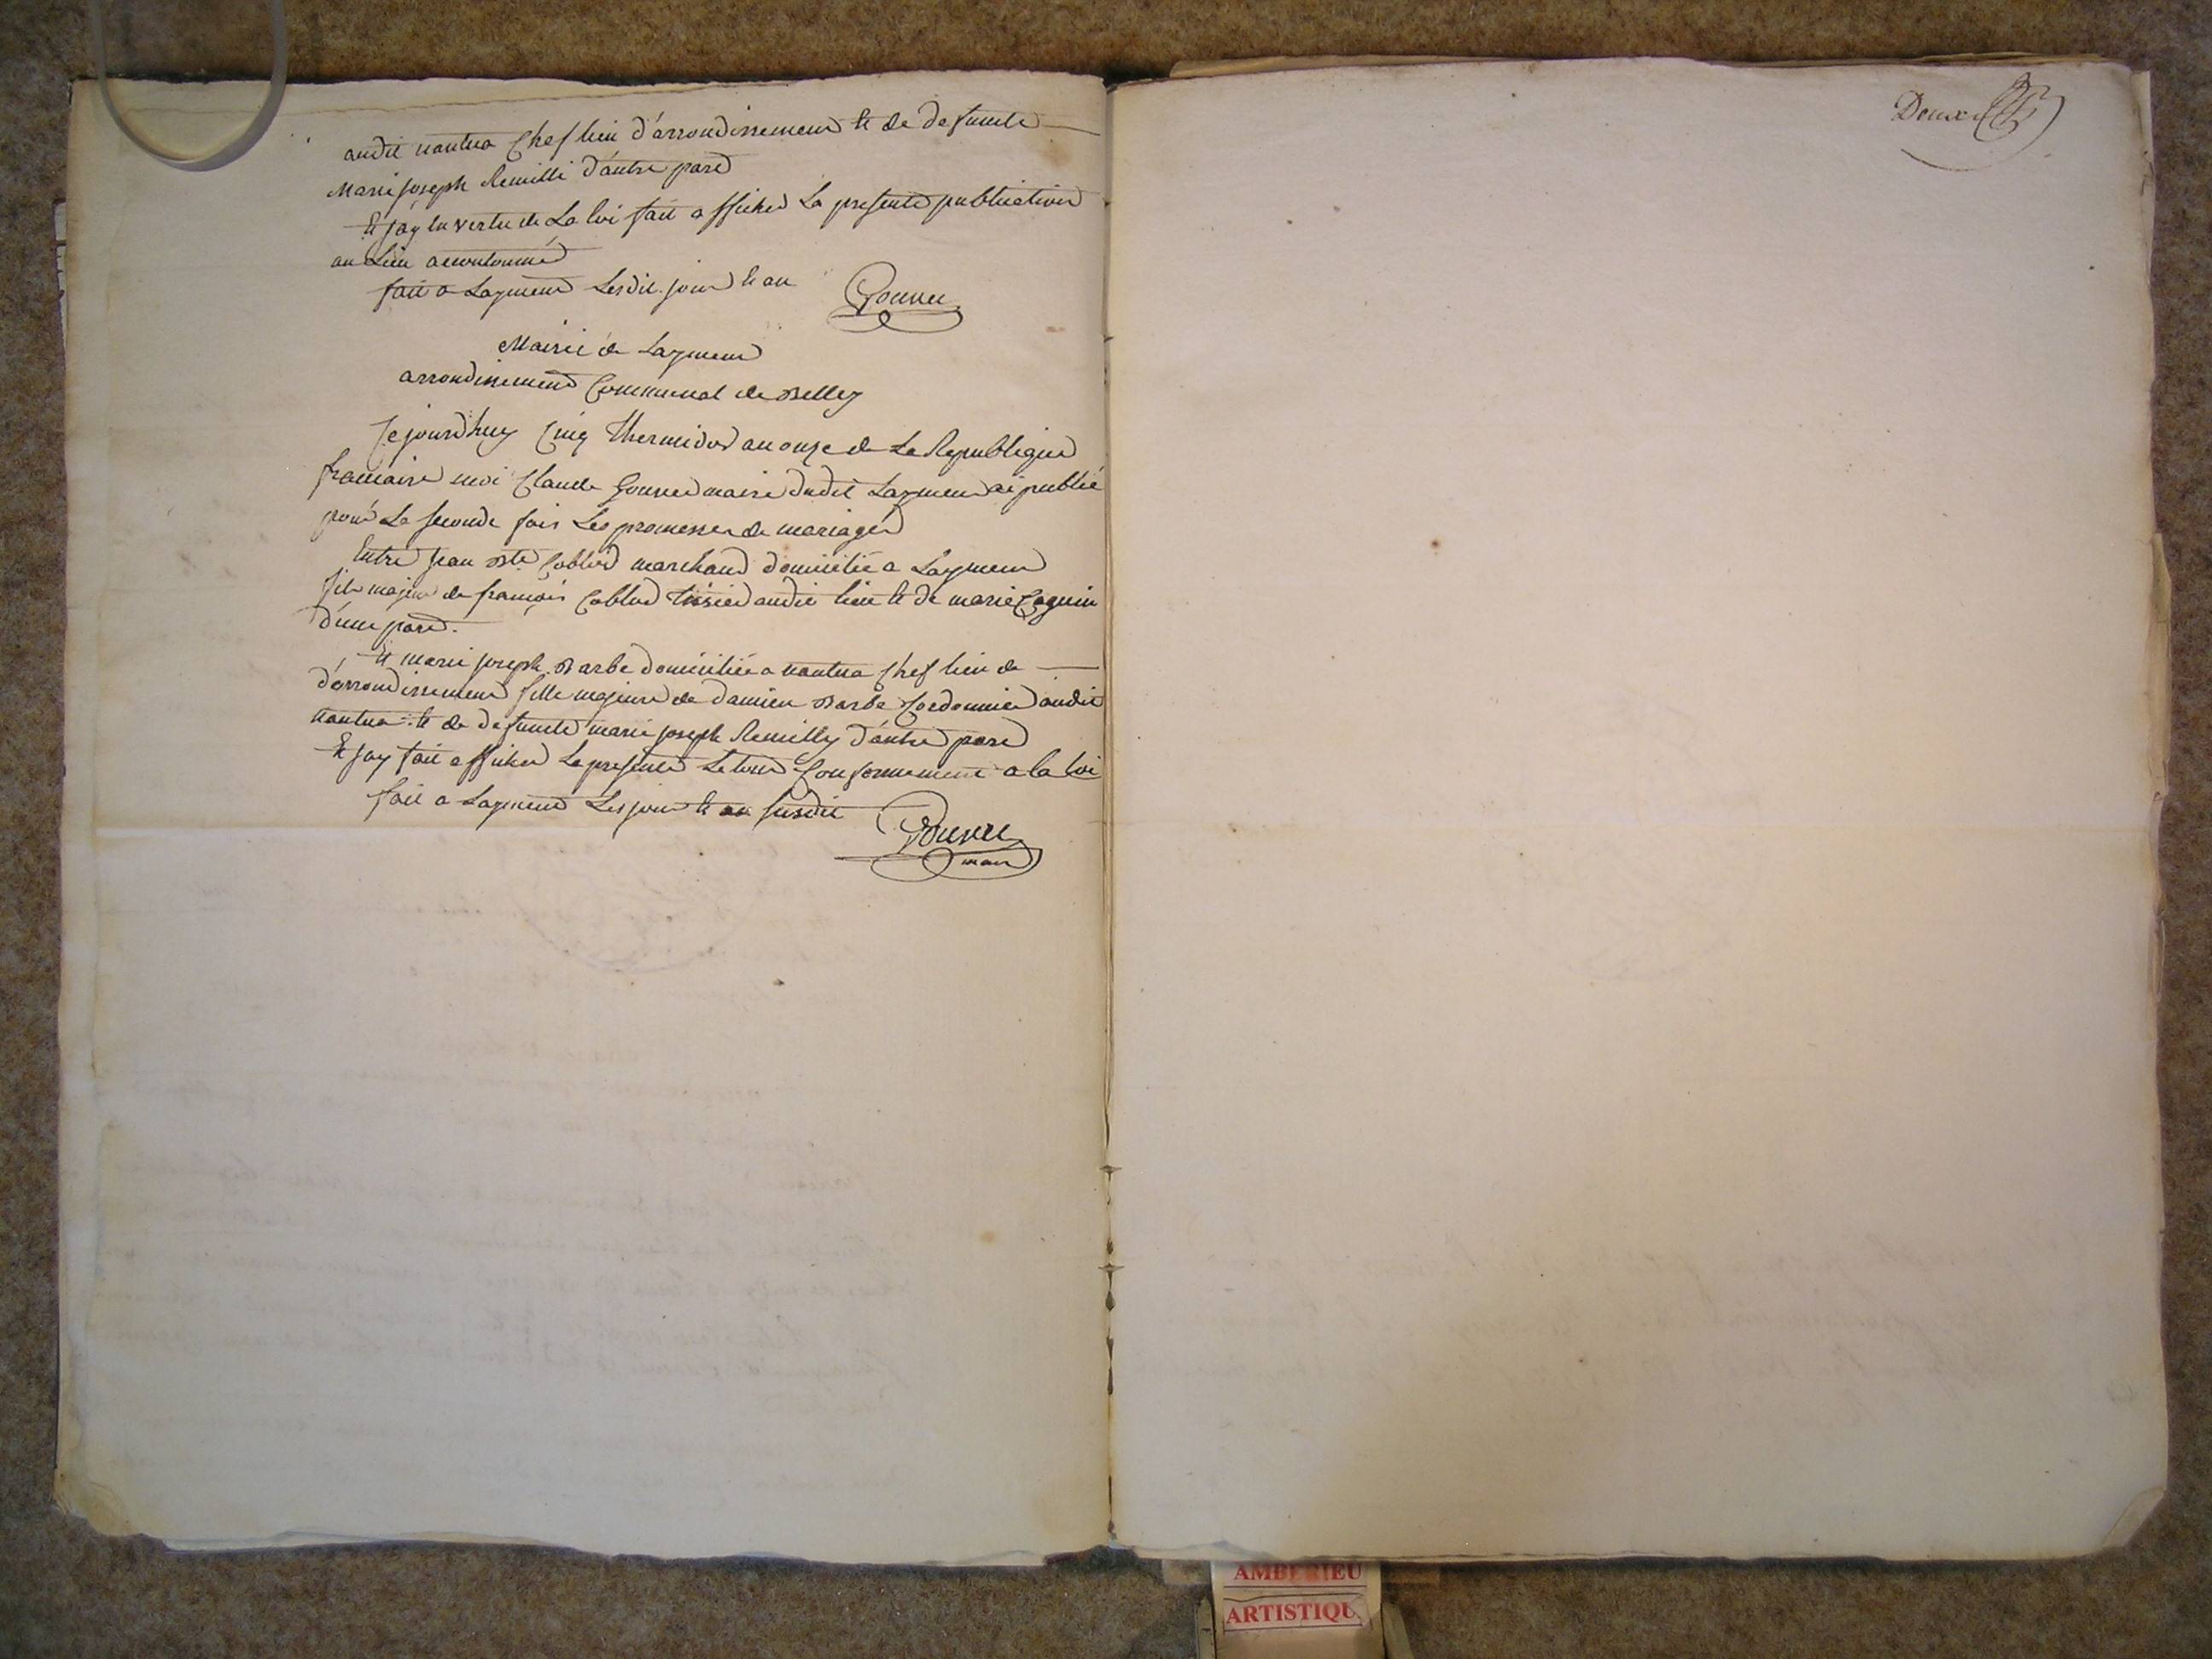 audit nantua Chef lieu d'arrondissement et de defunte
Marie joseph Remilli d'autre part
Et j'ay en vertu de La loi fait afficher La presente publication
au Lieu accoutumé
fait a Laymend Lesdit jour et an
Mairie de Laymend
arrondissement Communal de Belley
Cejourdhuy Cinq thermidor an onze de La Republique
francaise moi Claude maire dudit Laymend ai publié
pour La seconde fois Les promesses de mariage
Entre jean Bte marchand domicilié a Laymend
fils majeur de francois tissier audit lieu et de marie
d'une part.
Et marie joseph Barbe domiciliée a nantua Chef lieu de
d'arrondissement fille majeure de Damien Barbe Cordonnier audit
nantua et de defunte marie joseph Remilly d'autre part
Et j'ay fait afficher La presente Le tout Conformement a la loi
fait a Laymend Les jour et an susdit
maire
Deux
AMBERIEU
ARTISTIQU